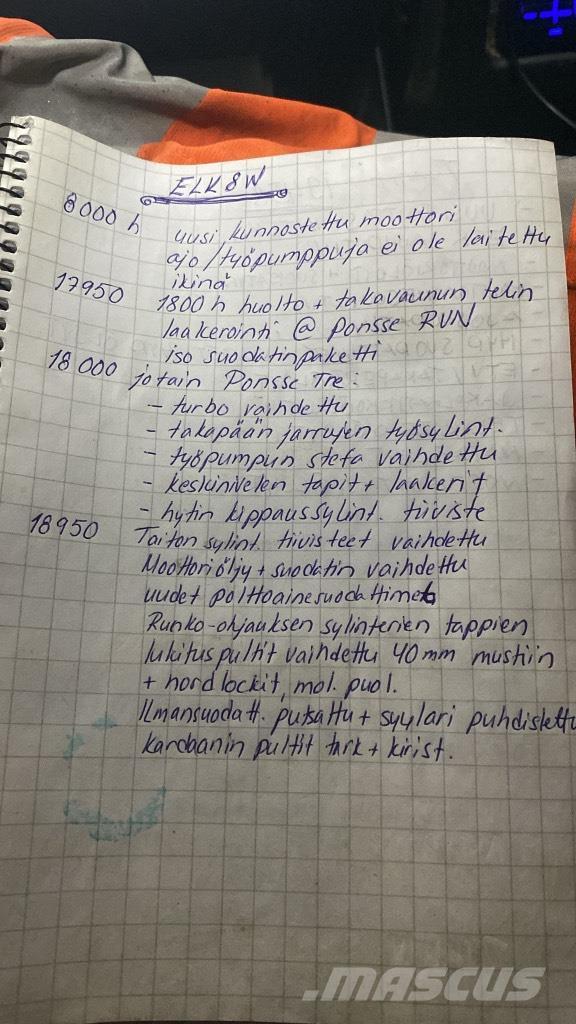 ELK 8W
8000 h uusi kunnostettu moottori
ajo/työpumppuja ei ole laitettu
ikinä
17950 1800 h huolto + takavaunun telin
laakerointi @ Ponsse RUN
iso suodatinpaketti
18 000 jotain Ponsse Tre:
- turbo vaihdettu
- takapään jarrujen työsylint.
- työpumpun stefa vaihdettu
- keskinivelen tapit + laakerit
- hytin kippaussylint. tiiviste
18950 Taiton sylint. tiivisteet vaihdettu
Moottoriöljy + suodatin vaihdettu
uudet polttoainesuodattimet
Runko-ohjauksen sylinterien tappien
lukituspultit vaihdettu 40 mm mustiin
+ nordlockit, mol. puol.
Ilmansuodatt. putsattu + syylari puhdistettu
kardaanin pultit tark + kirist.
.MASCUS